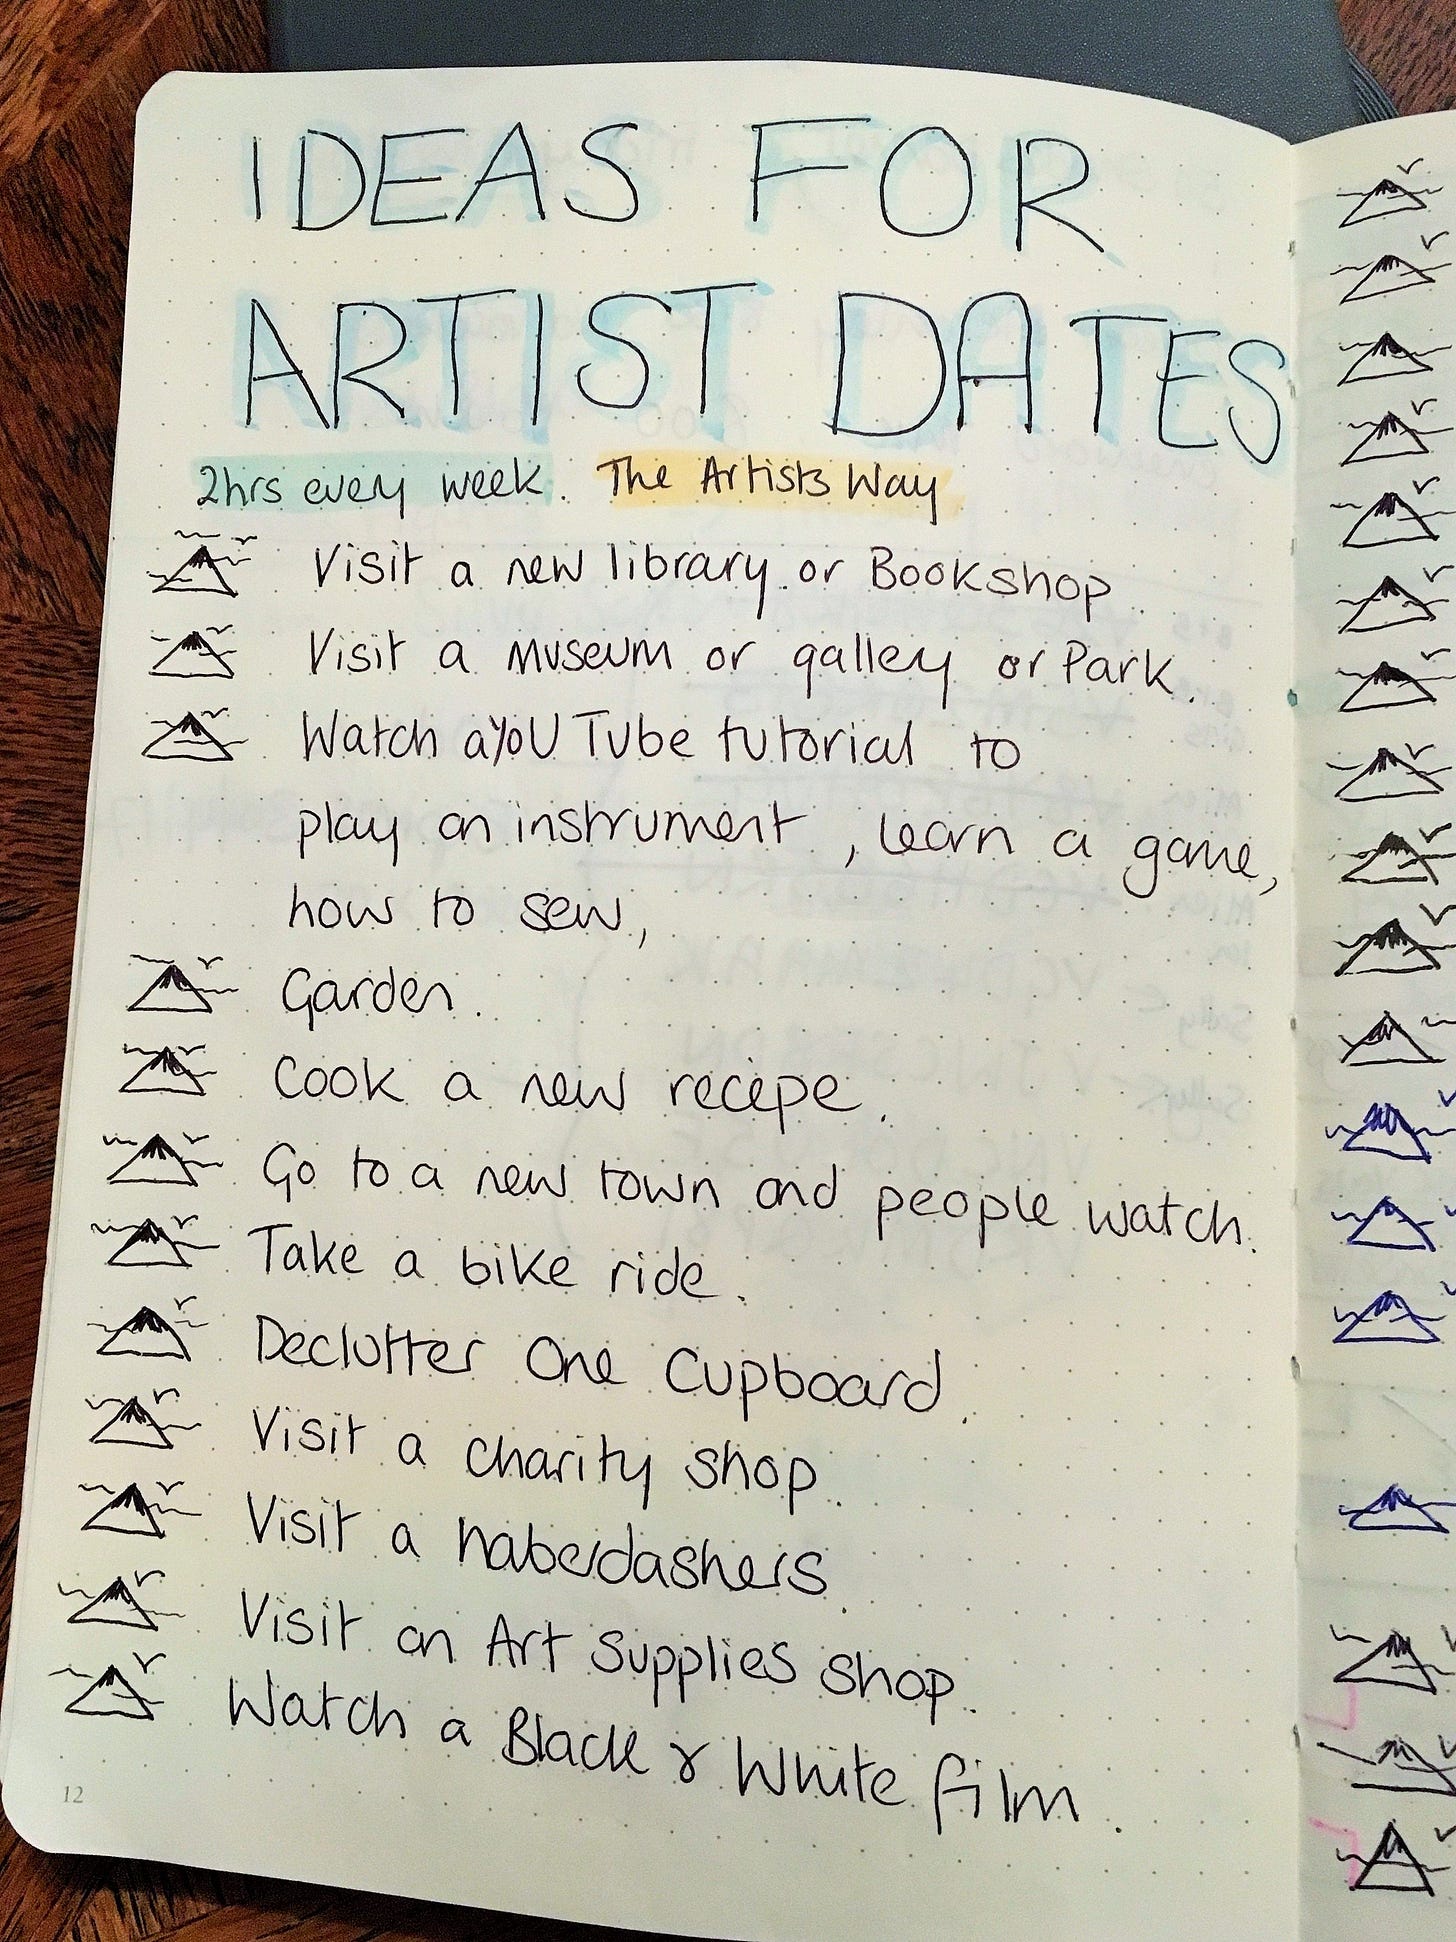 IDEAS FOR
ARTIST DATES
2hrs every week. The Artists Way
Visit a new library or Bookshop
Visit a museum or gallery or Park.
Watch a YouTube tutorial to
play an instrument, learn a game,
how to sew,
Garden.
Cook a new recepe.
Go to a new town and people watch.
Take a bike ride.
Declutter One Cupboard.
Visit a charity shop.
Visit a haberdashers.
Visit an Art Supplies shop.
Watch a Black & White film.
12